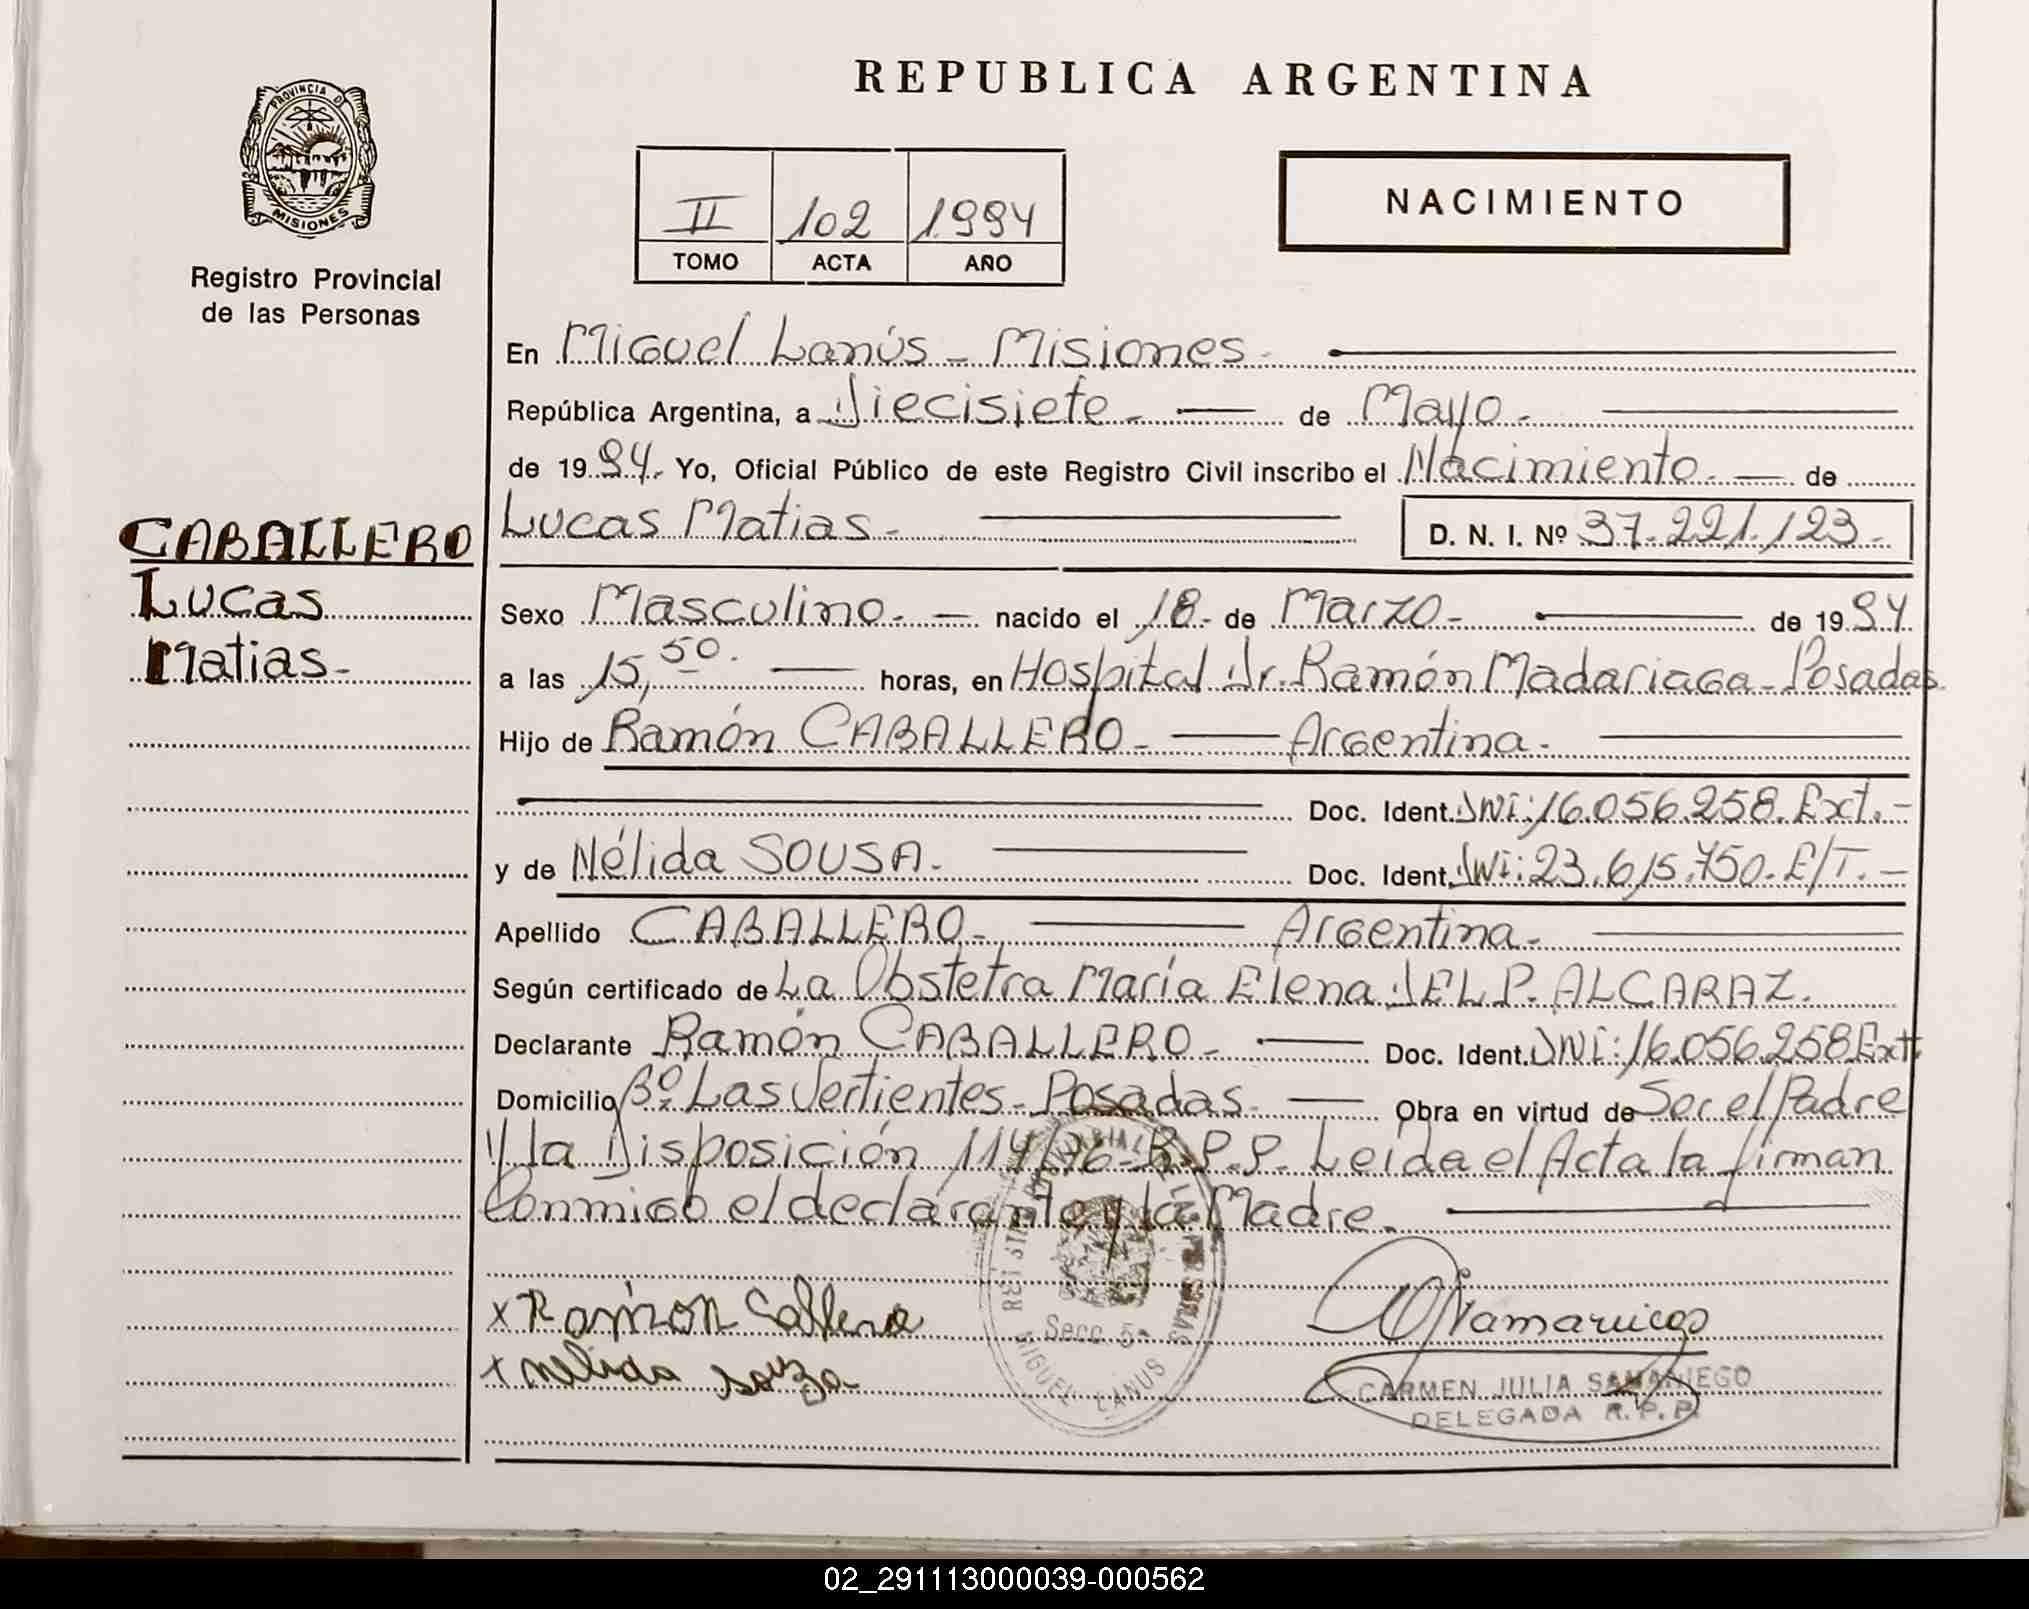 PROVINCIA DE
MISIONES
Registro Provincial
de las Personas
CABALLERO
Lucas
Matias-
REPUBLICA ARGENTINA
II 102 1994
TOMO ACTA AÑO
NACIMIENTO
En Miguel Lanús - Misiones -
República Argentina, a Diecisiete - de Mayo -
de 1994. Yo, Oficial Público de este Registro Civil inscribo el Nacimiento - de
Lucas Matias - D. N. I. Nº 37.221.123-
Sexo Masculino - nacido el 18 - de Marzo - de 1994.
a las 15,50. horas, en Hospital Dr. Ramón Madariaga - Posadas
Hijo de Ramón CABALLERO - Argentina -
Doc. Ident. DNI: 16.056.258. Ext. -
y de Nélida SOUSA - Doc. Ident. DNI: 23.615.750. E/T. -
Apellido CABALLERO - Argentina -
Según certificado de La Obstetra María Elena DEL P. ALCARAZ.
Declarante Ramón CABALLERO - Doc. Ident. DNI: 16.056.258 Ext.
Domicilio Bº Las Vertientes - Posadas - Obra en virtud de Ser el Padre
y la Disposición 114/76 - R.P.P. Leida el Acta la firman
Conmigo el declarante y la Madre.
x Ramon
x Nelida Souza
Secc. 5ª
MIGUEL LANUS
CARMEN JULIA SAMANIEGO
DELEGADA R.P.P.
02_291113000039-000562